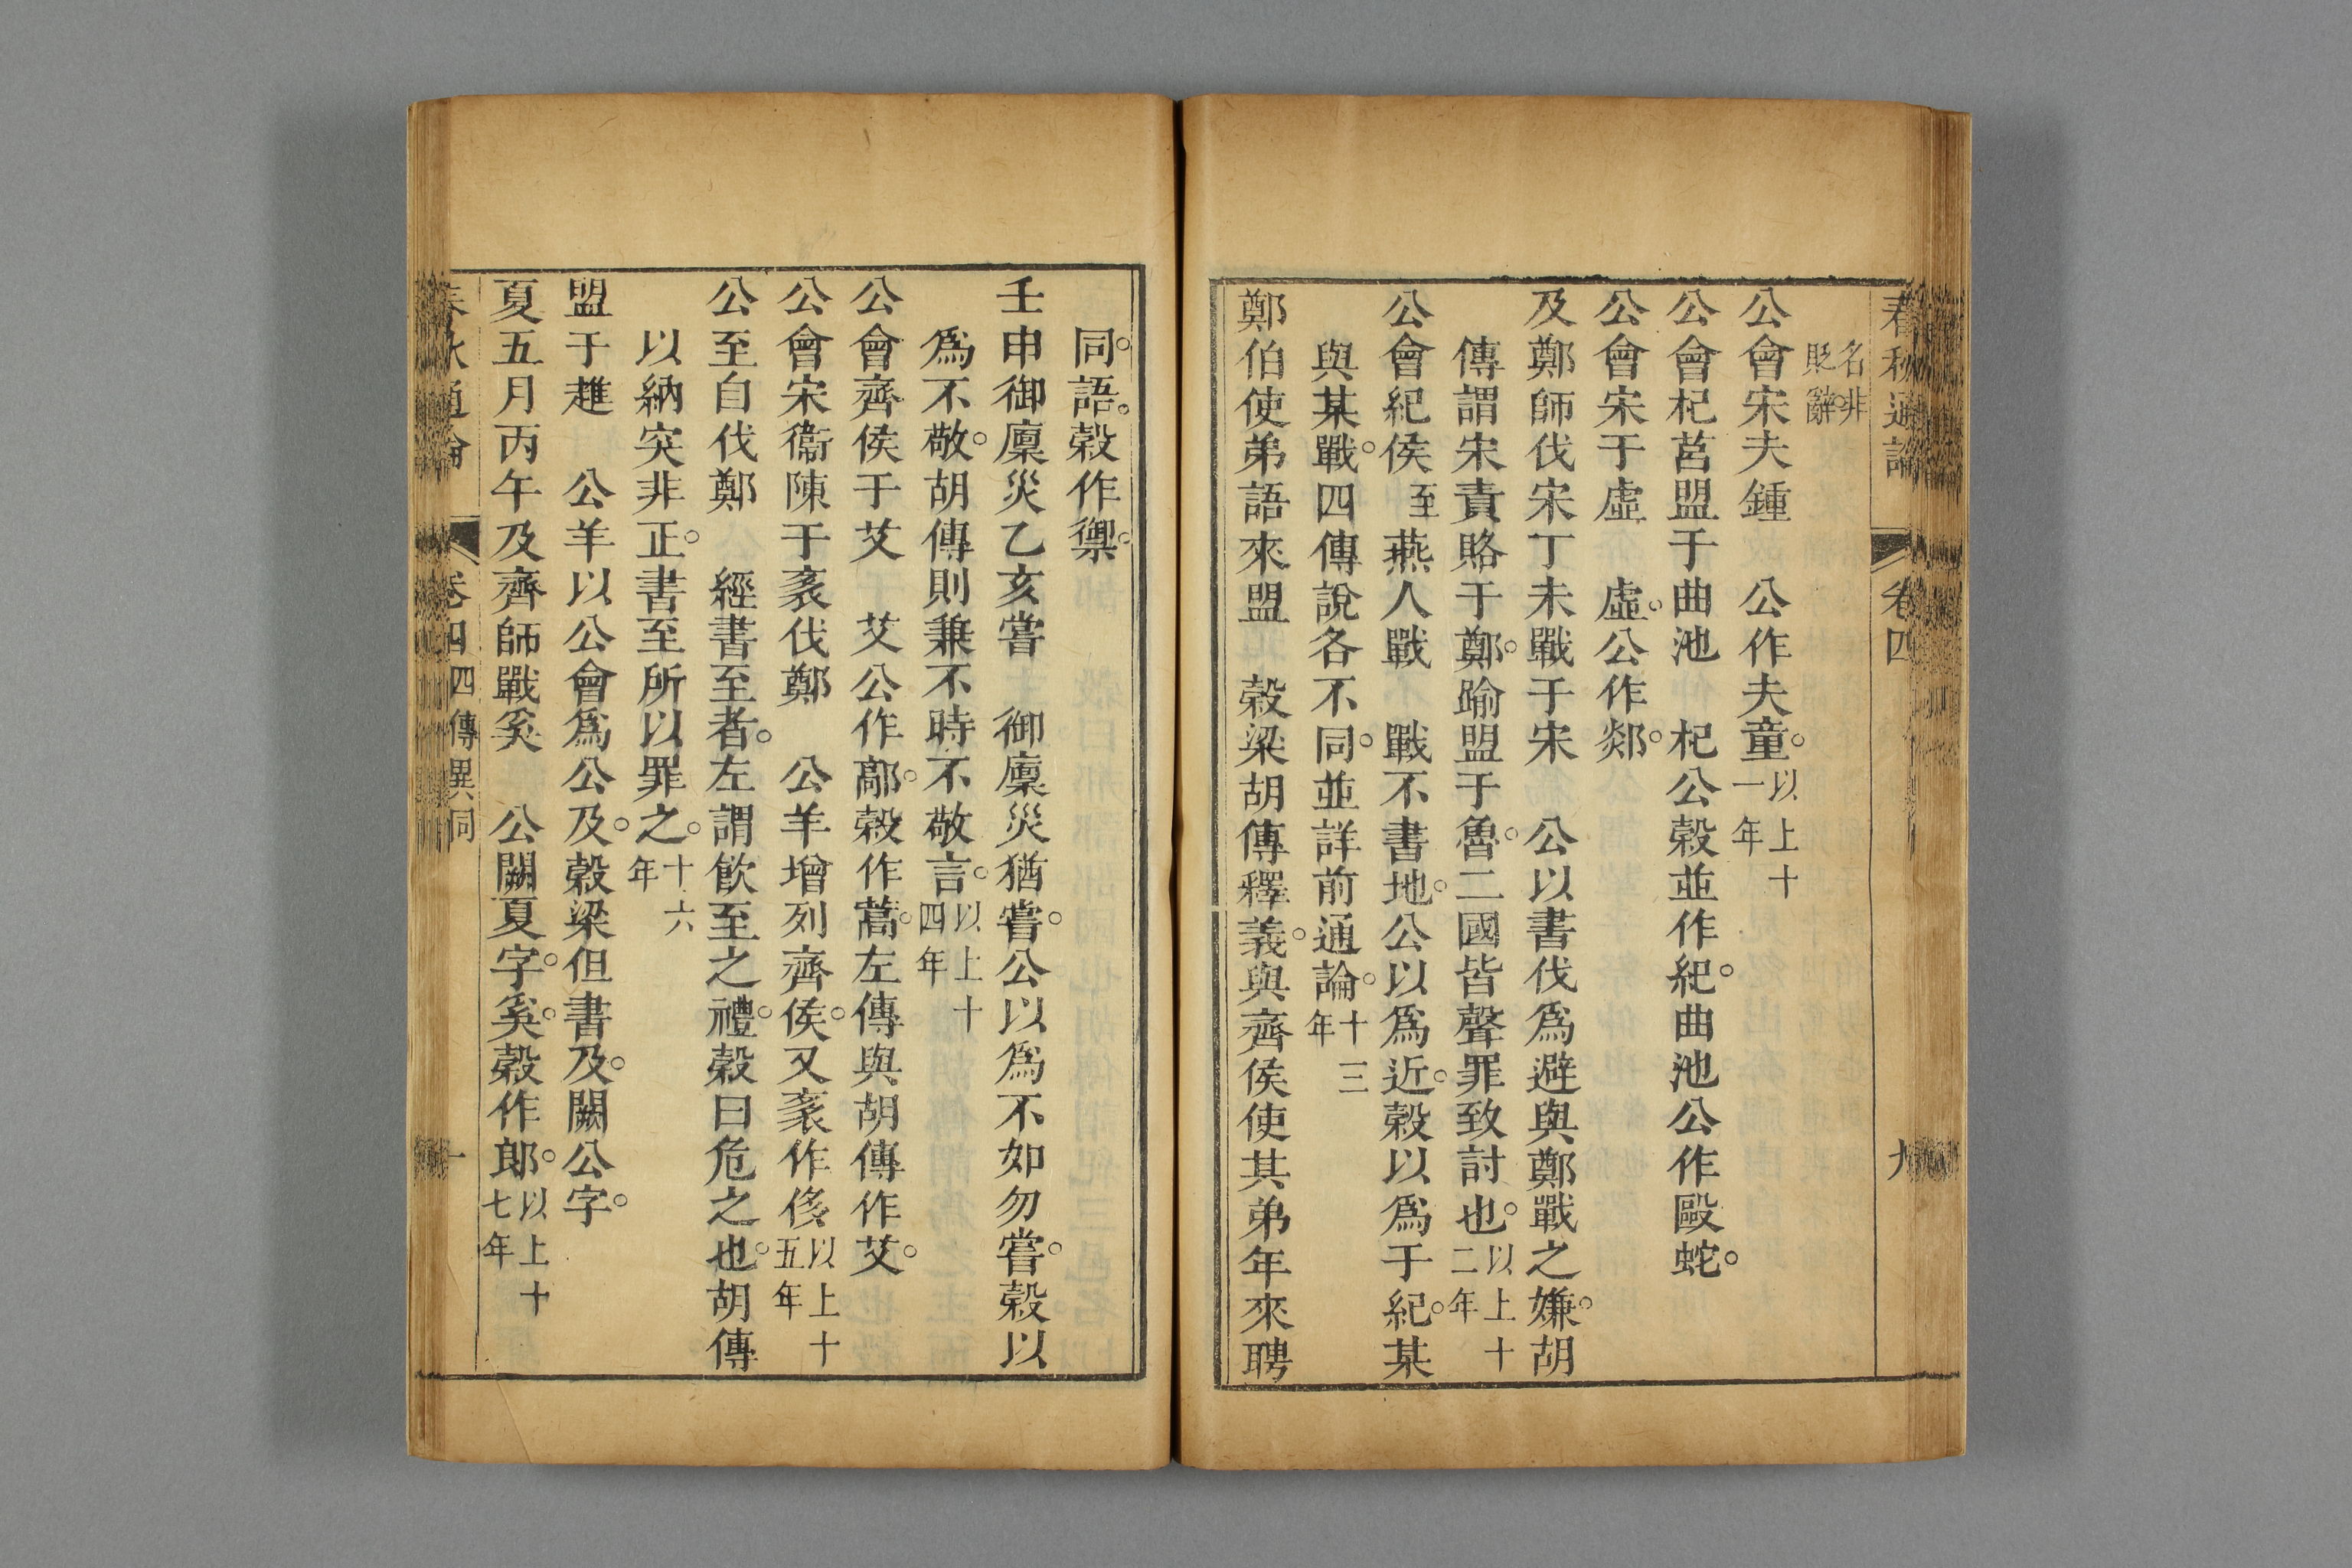 春秋通論 卷四 九
名非貶辭
公會宋夫鍾 公作夫童。以上十一年
公會杞莒盟于曲池 杞公穀並作紀。曲池公作毆蛇。
公會宋于虛 虛。公作郯。
及鄭師伐宋丁未戰于宋 公以書伐爲避與鄭戰之嫌。胡
傳謂宋責賂于鄭。踰盟于魯。二國皆聲罪致討也。以上十二年
公會紀侯至燕人戰 戰不書地。公以爲近。穀以爲于紀。某
與某戰。四傳說各不同。並詳前通論。十三年
鄭伯使弟語來盟 穀梁胡傳釋義。與齊侯使其弟年來聘
同。語。穀作禦。
壬申御廩災乙亥嘗 御廩災猶嘗。公以爲不如勿嘗。穀以
爲不敬。胡傳則兼不時不敬言。以上十四年
公會齊侯于艾 艾公作鄗。穀作蒿。左傳與胡傳作艾。
公會宋衞陳于袤伐鄭 公羊增列齊侯。又袤作侈以上十五年
公至自伐鄭 經書至者。左謂飮至之禮。穀曰危之也。胡傳
以納突非正。書至所以罪之。十六年
盟于趡 公羊以公會爲公及。穀梁但書及。闕公字。
夏五月丙午及齊師戰奚 公闕夏字。奚。穀作郎。以上十七年
春秋通論 卷四 四傳異同